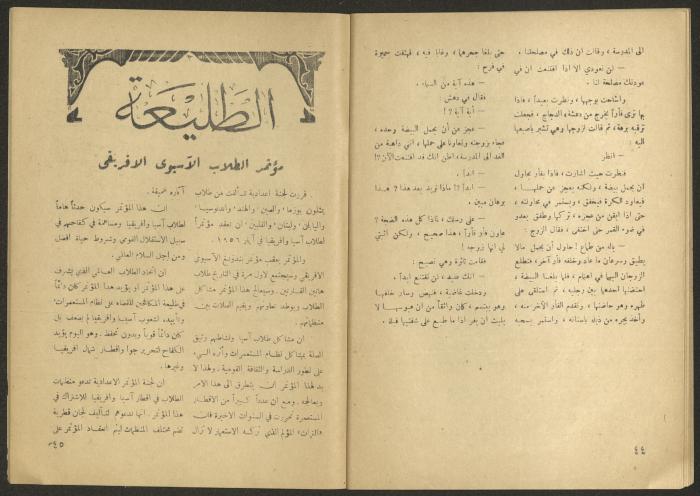 الى المدرسة ، وقالت ان ذلك في مصلحتنا .
— لن تعودي الا اذا اقتنعت ان في
عودتك مصلحة لنا .
واشاحت بوجهها ، ونظرت بعيداً ، فاذا
بها ترى فأراً يخرج من دهشة الدجاج ، فجعلت
ترقبه برهة ، ثم قالت لزوجها وهي تشير باصبعها
اليه :
— انظر
فنظر حيث اشارت ، فاذا بفأر يحاول
ان يحمل بيضة ، ولكنه يعجز عن حملها ،
فيعاود الكرة فيخفق ، ويستمر في محاولته ،
حتى اذا ايقن من عجزه ، تركها وطفق يعدو
في ضوء القمر حتى اختفى ، فقال الزوج :
— ياله من طماع ! حاول ان يحمل مالا
يطيق وسرعان ما عاد وخلفه فأر آخر ، فتطلع
الزوجان اليها في اهتمام ، فلما بلغا البيضة ،
احتضنها احدهما بين رجليه ، ثم استلقى على
ظهره وهو حاضنها ، وتقدم الفأر الآخر منه ،
وأخذ يجره من ذيله باسنانه ، واستمر يسحبه
حتى بلغا جحرهما ، وغابا فيه ، فهتفت سميرة
في فرح :
— هذه آية من السماء .
فقال في دهش :
— أية آية ؟!
— عجز عن أن يحمل البيضة وحده ،
فجاء بزوجته وتعاونا على حملها ، انني ذاهبة من
الغد الى المدرسة ، اظن انك قد اقتنعت الآن ؟!
— ابداً .
— ابداً ؟! ماذا تريد بعد هذا ؟ هذا
برهان مبين .
— على رسلك ، لماذا كل هذه الضجة ؟
عاون فأر فأراً ، هذا صحيح ، ولكن أثبتي
لي انها زوجه !
فقامت ثائرة وهي تصيح :
— انك عنيد ، لن تقتنع ابداً .
ودخلت غاضبة ، فنهض وسار خلفها
وهو يبتسم ، كان واثقاً من ان عبوسها لا
يلبث ان يفر اذا ما طبع على شفتيها قبلة .
٤٤
الطليعة
مؤتمر الطلاب الآسيوي الافريقي
قررت لجنة اعدادية تتألف من طلاب
يمثلون بورما ، والصين ، والهند ، واندونيسيا ،
واليابان ، ولبنان ، والفلبين ، ان تعقد مؤتمراً
لطلاب آسيا وافريقيا في أيار ١٩٥٦ .
والمؤتمر يعقب مؤتمر بندونغ الآسيوي
الافريقي وسيجتمع لاول مرة في التاريخ طلاب
هاتين القارتين . وسيعالج هذا المؤتمر مشاكل
الطلاب ويوطد تعاونهم ويقيم الصلات بين
منظماتهم .
ان مشاكل طلاب آسيا ونشاطهم وثيق
الصلة بمشاكل نظام المستعمرات وأثره السيء
على تطور الدراسة والثقافة القومية . ولهذا لا
بد لهذا المؤتمر ان يتطرق الى هذا الامر
ويعالجه . ومع ان عدداً كبيراً من الاقطار
المستعمرة تحررت في السنوات الاخيرة فان
«التراث» المؤلم الذي تركه الاستعمار لا تزال
آثاره عميقة .
ان هذا المؤتمر سيكون حدثاً هاماً
لطلاب آسيا وافريقيا ومساهمة في كفاحهم في
سبيل الاستقلال القومي وشروط حياة افضل
ومن اجل السلام العالمي .
ان اتحاد الطلاب العالمي الذي يشرف
هذا المؤتمر او يؤيد هذا المؤتمر كان دائماً
في طليعة المكافحين للقضاء على نظام المستعمرات .
وتأييده لشعوب آسيا وافريقيا لم يضعف بل
كان دائماً قوياً وبدون تحفظ . وهو اليوم يؤيد
الكفاح لتحرير جوا واقطار شمال افريقيا
وغيرها .
ان لجنة المؤتمر الاعدادية تدعو منظمات
الطلاب في اقطار آسيا وافريقيا للاشتراك في
هذا المؤتمر . انها تدعوهم لتأليف لجان قطرية
تضم مختلف المنظمات ليتم انعقاد المؤتمر على
٤٥